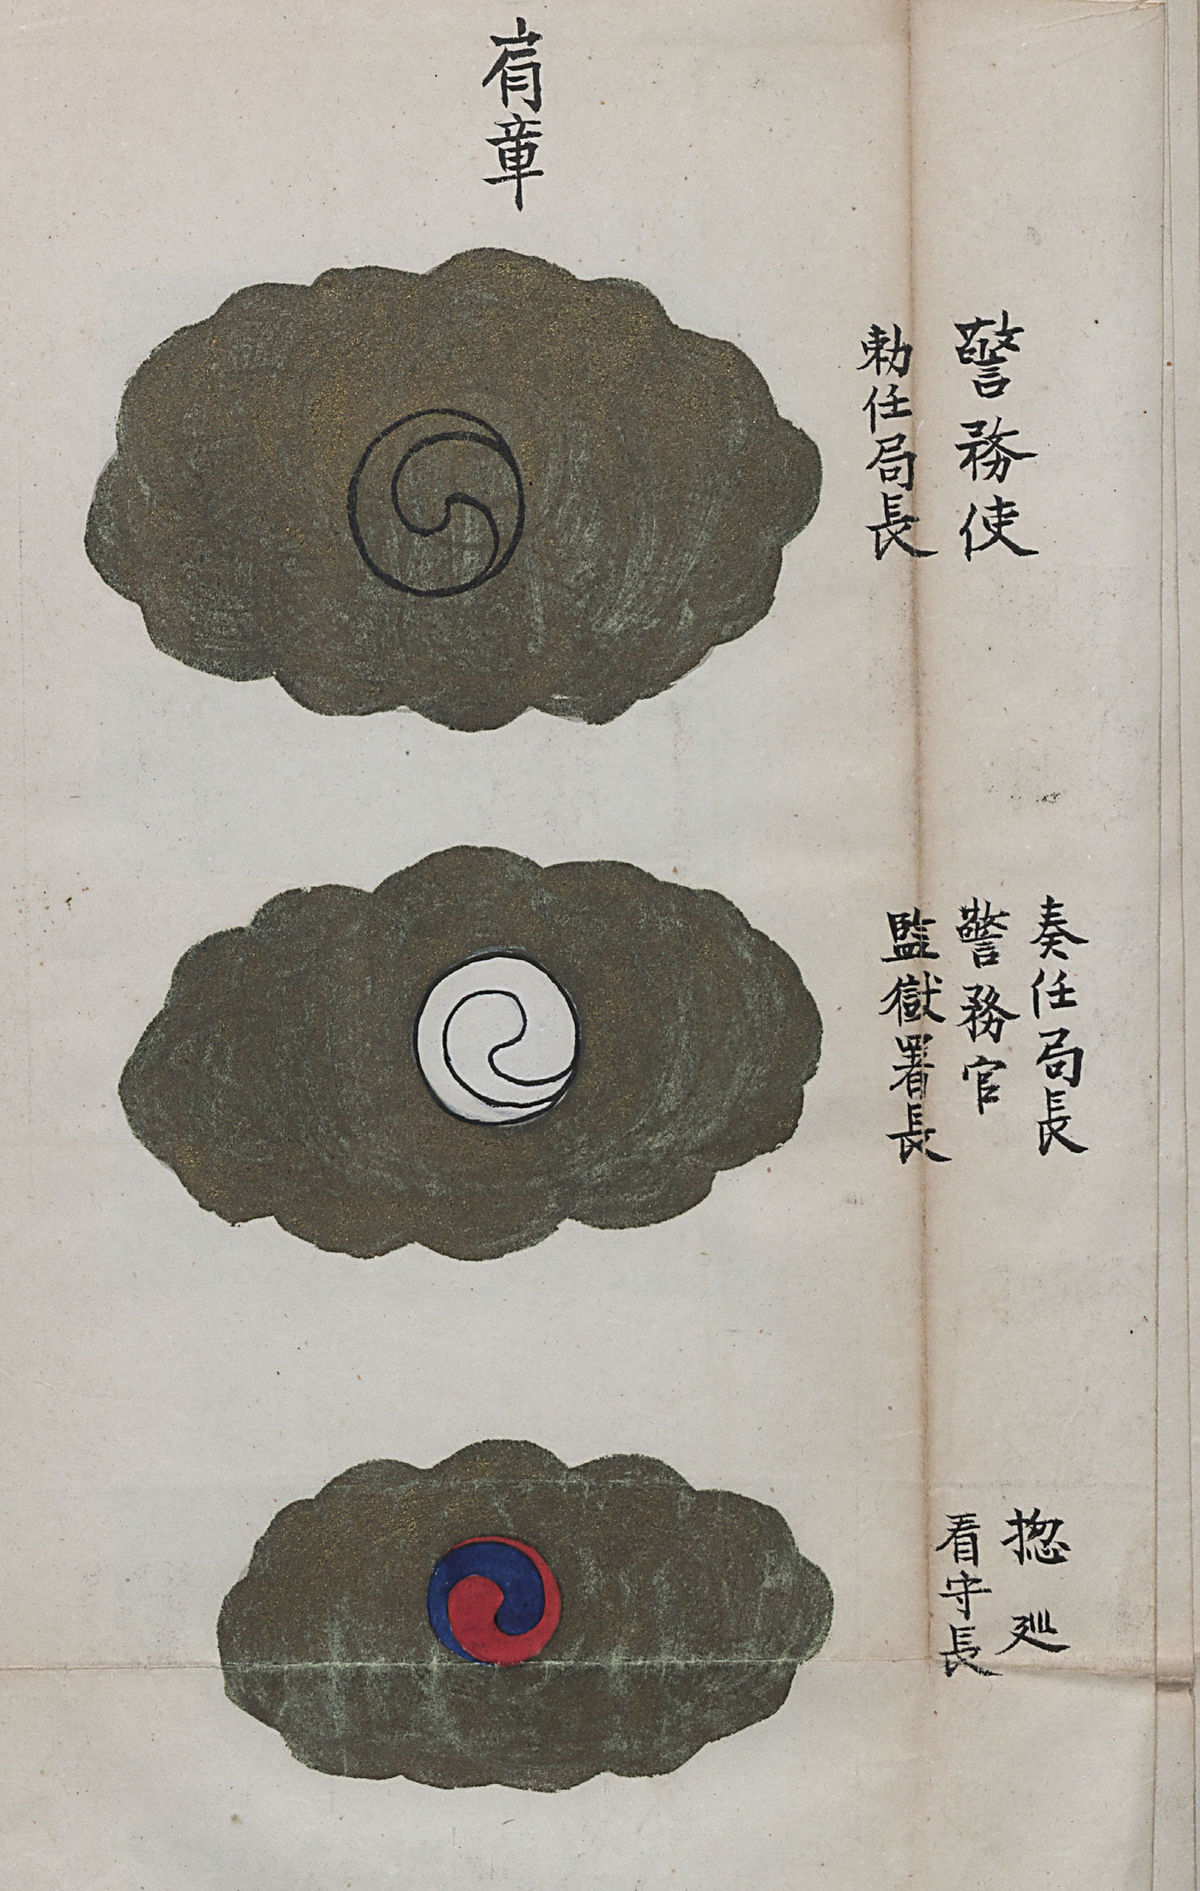 肩章
警務使
勅任局長
奏任局長
警務官
監獄署長
摠巡
看守長